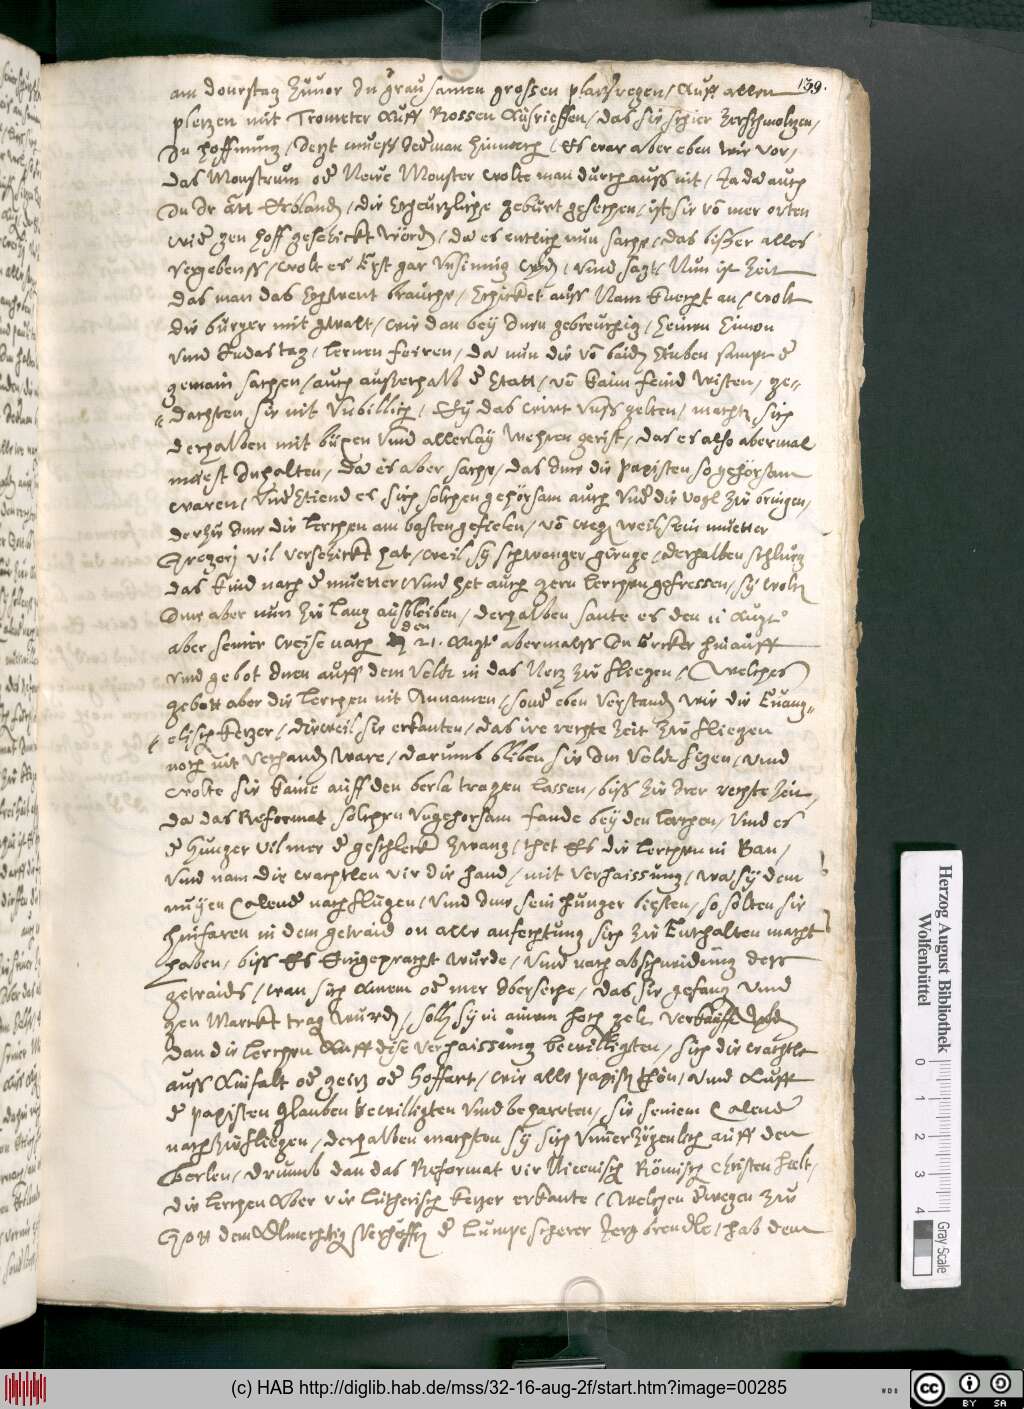 139.
am donrstag Zuuor In grausamen grossen platzregen / Auff allen
pletzen mit Trometer Auff Rossen Aussrieffen / das sy schier Zerschmoltzen /
In hoffnung / Jetzt muess Jederman hinweck / Es war aber eben wie vor /
das Monstrum od Newe Monster wolte man durchauss nit / Ja da auch
wid gen hoff geschickt worden / da es entlich nun sache / das bissher alles
vergebenss / wolt es Erst gar Vnsinnig werden / vnnd sagt / Nun ist Zeit
das man das brauche / Schicket auss Nam Knecht an / wolt
die burger mit gwalt / wie dan bey Inen gebreuchig / Iren Simon
vnnd Judas tag / lernen feiren / da nun die von baiden sampt d
gemain sachen / auch ausserhalb d Statt / von kaim feind wisten / ge-
dachten sie nit Vnbillich / Ey das wirt Vnss gelten / machten sich
derhalben mit büxen vnnd allerlay wehren gerist / das es also abermal
muest Inhalten / da es aber sache / das Ime die papisten so gehorsam
waren / sich solchen gehorsam auch vnd die vogl Zu bringen /
derzu Ime die lerchen am basten gefielen / von wegen weil sein muetter
Gregorj vil verschickt hat / weil sy schwanger gienge / derhalben schlueg
das Kind nach d muetter / vnnd het auch gern lerchen gefressen / sy wolten
Ime aber nun Zu lang aussbleiben / derhalben sante es den 11 Augto
aber seiner weise nach den 21. Augto abermalss In Ercker hinauff
vnd gebot Inen auff dem Veldt in das Netz Zu fliegen / (welches)
gebott aber die lerchen nit Annamen / sond eben Verstanden wie die Euang-
elisch ketzer / dieweil sie erkanten / das ire rechte Zeit Zu fliegen
noch nit Verhanden ware / darumb bliben sie Im Veldt sitzen / vnnd
wolte sie kaine auff den berla tragen lassen / biss Zu Irer rechte Zeit /
da das Reformat solchen Vngehorsam fande bey den lerchen / vnd es
d hunger vil mer d geschleck Zwang / thet Es die lerchen in Ban /
vnnd nam die wachtlen vir die hand / mit Verhaissung / wa sy dem
nuyen Calend nach flugen / vnnd Ime sein hunger biesten / so solten sie
hinfaren in dem getraid on alle anfechtung sich Zu Enthalten macht
haben / biss Es Eingepracht wurde / vnnd nach abschneidung dess
getraids / wan sich Ainem od mer Ibersehe / das sie gefang vnnd
gen Marckt trag wurden / soll sy in ainem hoch gelt verkaufft werden
dan die lerchen Auff dise verhaissung bewilligten / sich die wachtle
auss Ainfalt od geitz od Hoffart / wie alle papisten thon / vnnd Auff
d papisten glauben bewilligten vnnd beharrten / sie seinem Calend
nach Zu fliegen / derhalben machten sy sich vnuerZogenlich auff den
berlen / drumb dan das Reformat vir Nicenisch Römisch Christen helt /
die lerchen Aber vir lutherisch ketzer erkante / welchen dwegen Zu
Gott dem Allmechtig Verhoffen d Lumpescherer Jerg brendle / hab dem
Herzog August Bibliothek
Wolfenbüttel
0 1 2 3 4
Gray Scale
(c) HAB http://diglib.hab.de/mss/32-16-aug-2f/start.htm?image=00285
WDB
cc BY SA